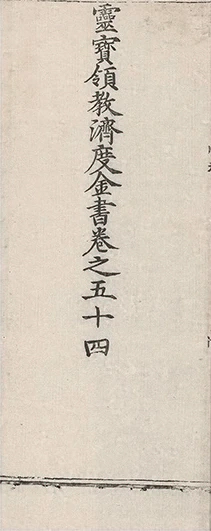 靈寶領教濟度金書卷之五十四